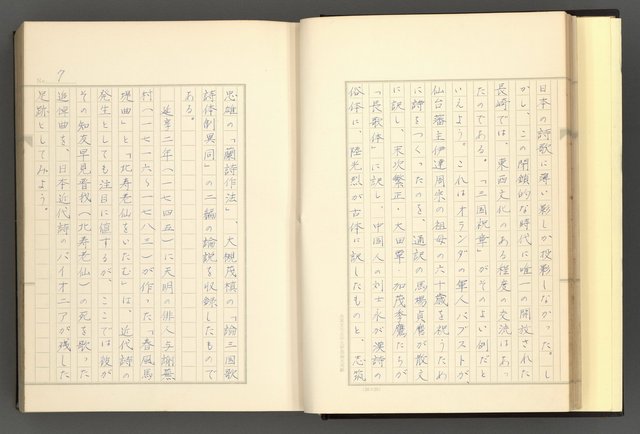 日本の詩歌に薄い影しか投影しなかった。し
かし、この閉鎖的な時代に唯一の開放された
長崎では、東西文化のある程度の交流はあっ
たのである。「三国祝章」がそのよい例だと
いえよう。これはオランダの軍人パブストが、
仙台藩主伊達周宗の祖母の六十歳を祝うため
に詩をつくったのを、通訳の馬場貞暦が散文
に訳し、末次繁正・大田畢・加茂季鷹たちが
「長歌体」に訳し、中国人の刘士永が漢詩の
俗体に、陸光烈が古体に訳したものと、志筑
忠雄の「蘭詩作法」、大槻茂槙の「論三国歌
詩体制異同」の二編の論説を収録したもので
ある。
延享二年(一七四五)に天明の俳人与謝蕪
村(一七一六〜一七八三)が作った「春風馬
堤曲」と「北寿老仙をいたむ」は、近代詩の
発生としても注目に値するが、ここでは彼が
その知友早見晋我(北寿老仙)の死を歌った
追悼曲を、日本近代詩のパイオニアが残した
足跡としてみよう。
No. 7